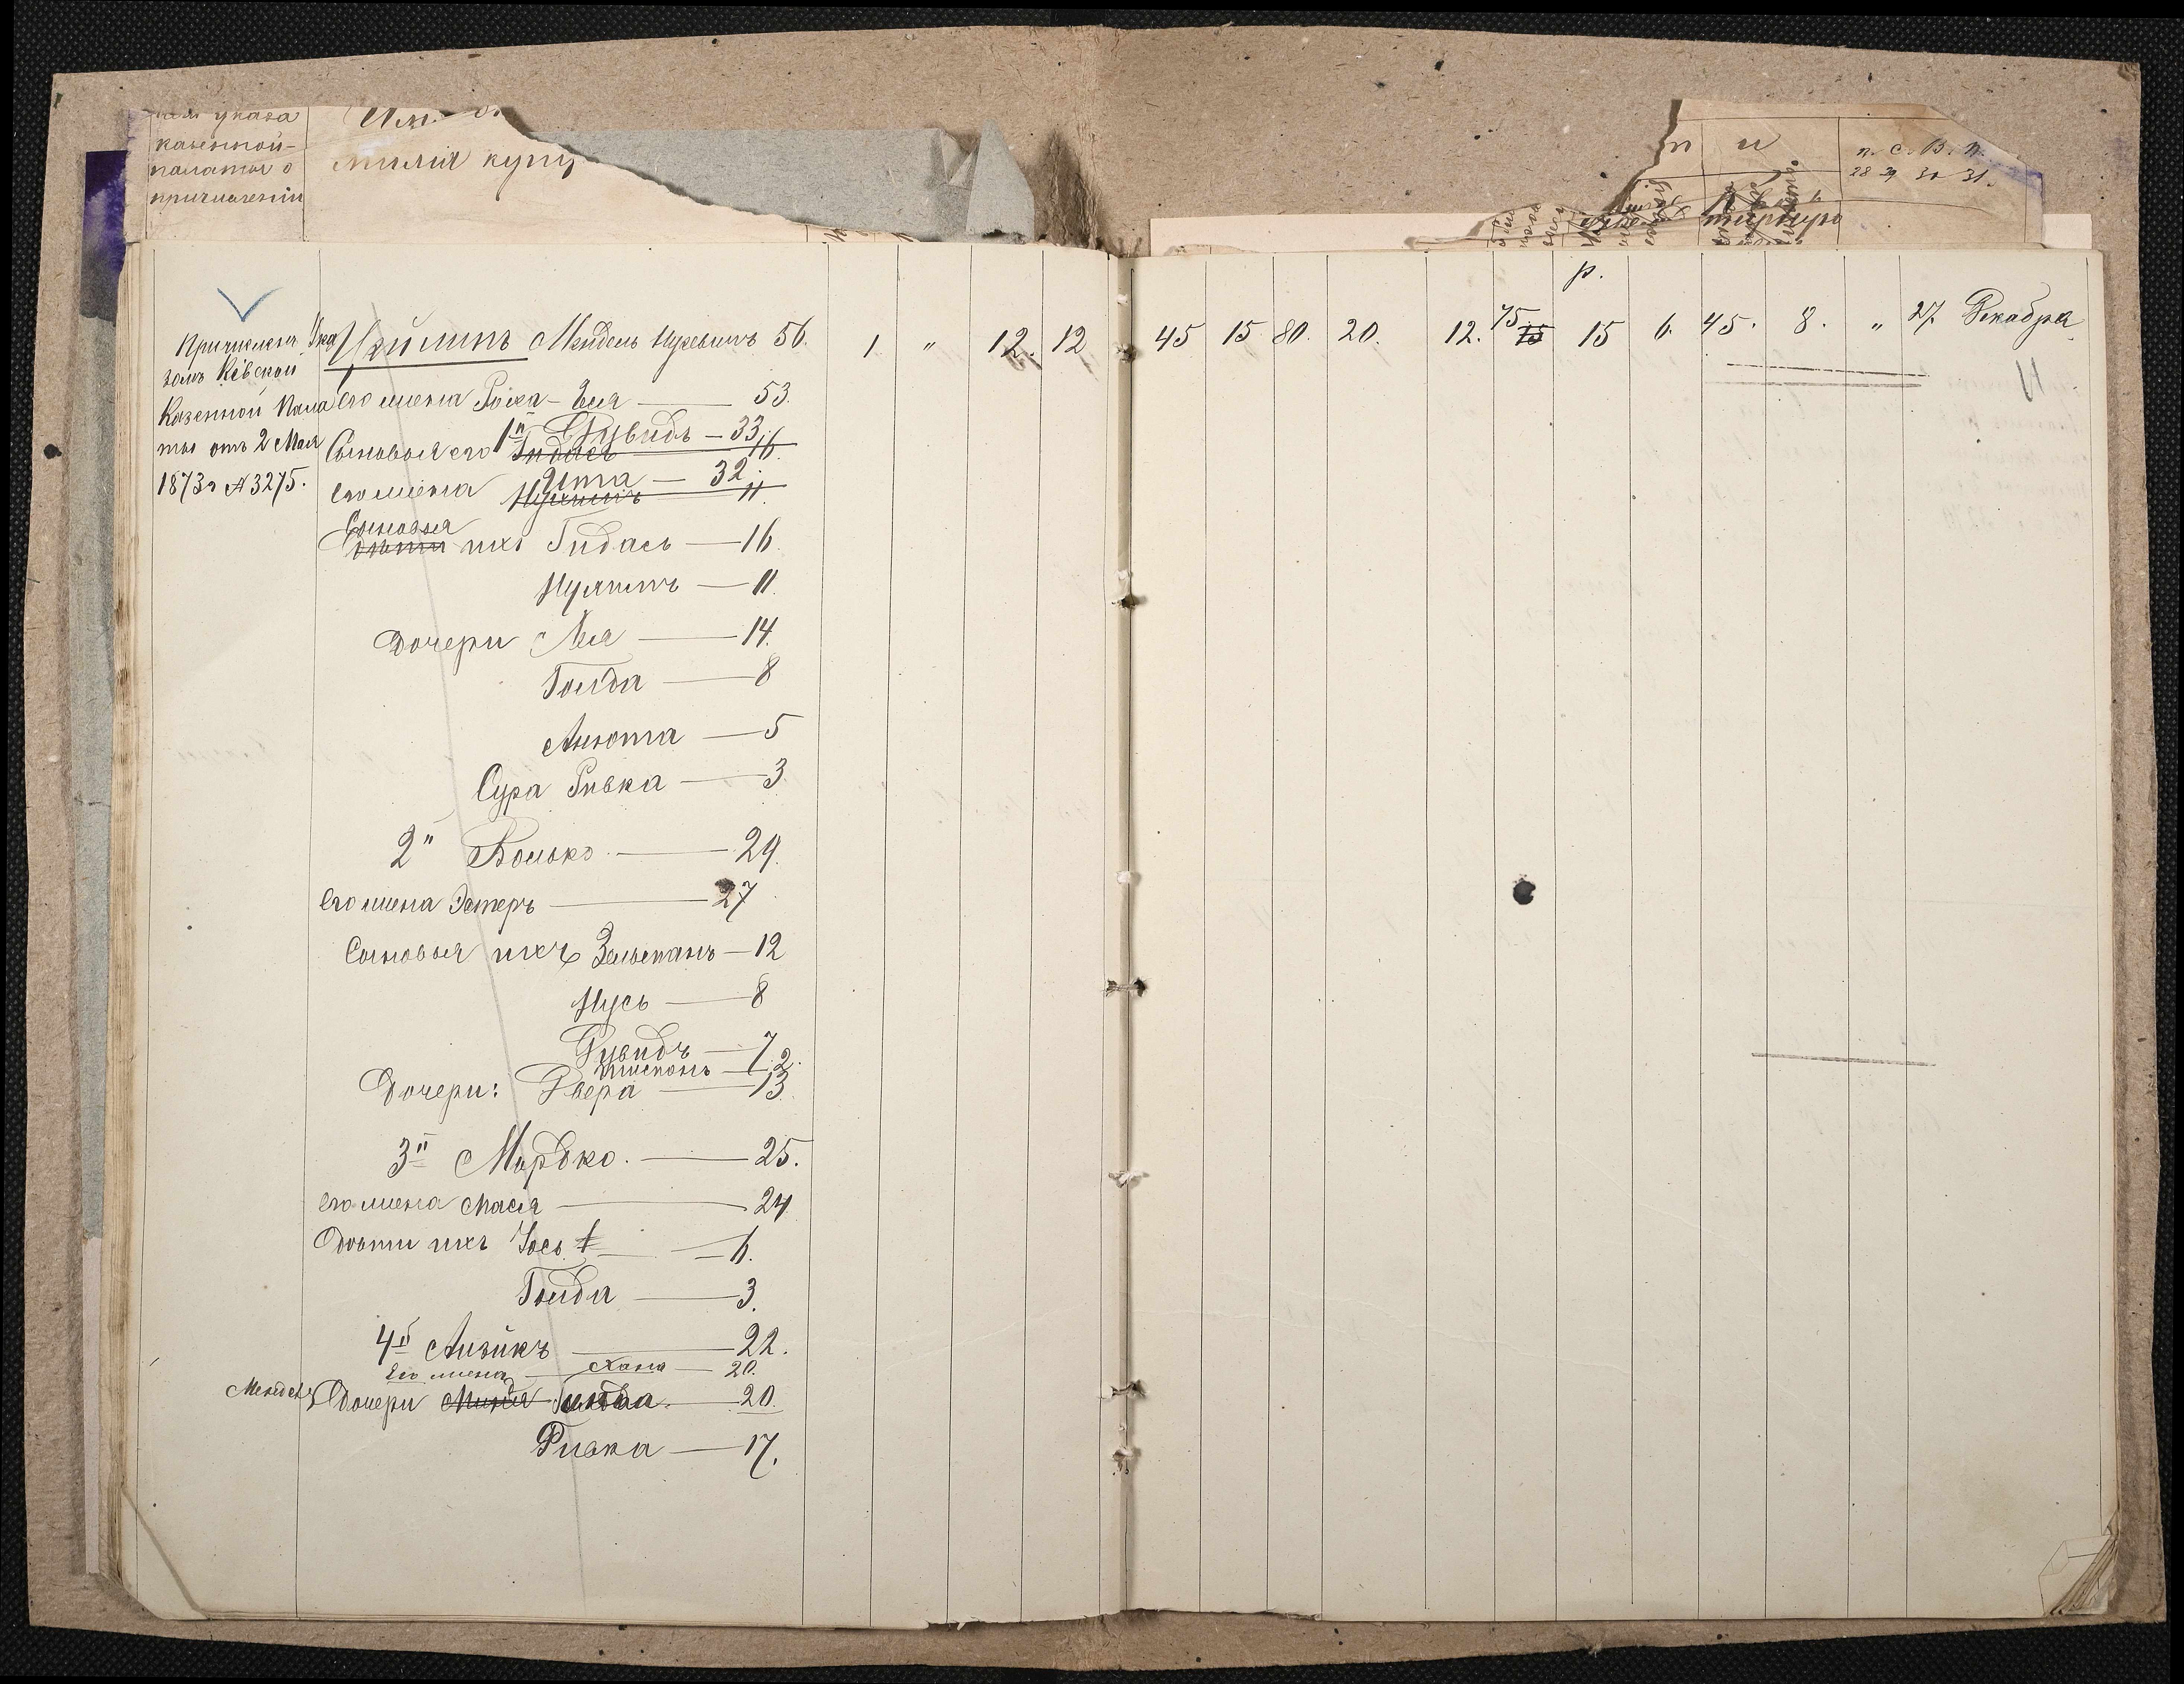 указа
казенной
палаты о
причислении
милія купц
п и
п. с. в. п.
28 29 30 31.
р.
Причислен Ука
зомъ Кіевской
Казенной Пала
ты отъ 2 Мая
1873 г № 3275.
Мендель Нусевичъ 56. 1 " 12. 12 45 15 80. 20. 12. 75 75 15 6. 45. 8. " 27 Декабря
Его жена Рыся-Бея — 53.
1й Давидъ — 33
Сыновья его Гидась 16
Его жена Ита — 32
11.
Сыновья
дѣти ихъ Гидась — 16
Нухимъ — 11.
Дочери Лея — 14.
Голда — 8
Анюта — 5
Сура Ривка — 3.
2й Волько — 29.
Его жена Эстеръ — 27
Сыновья ихъ Зельманъ — 12
Нусь — 8
Давидъ — 7
— 2.
Дочери: Двера — 13
3й Мордко. — 25.
Его жена Мася — 24
Дѣти ихъ Іось — 6.
Голда — 3.
4й Айзикъ — 22.
Его жена Хана — 20.
Менделя Дочери — 20.
Ривка — 17.